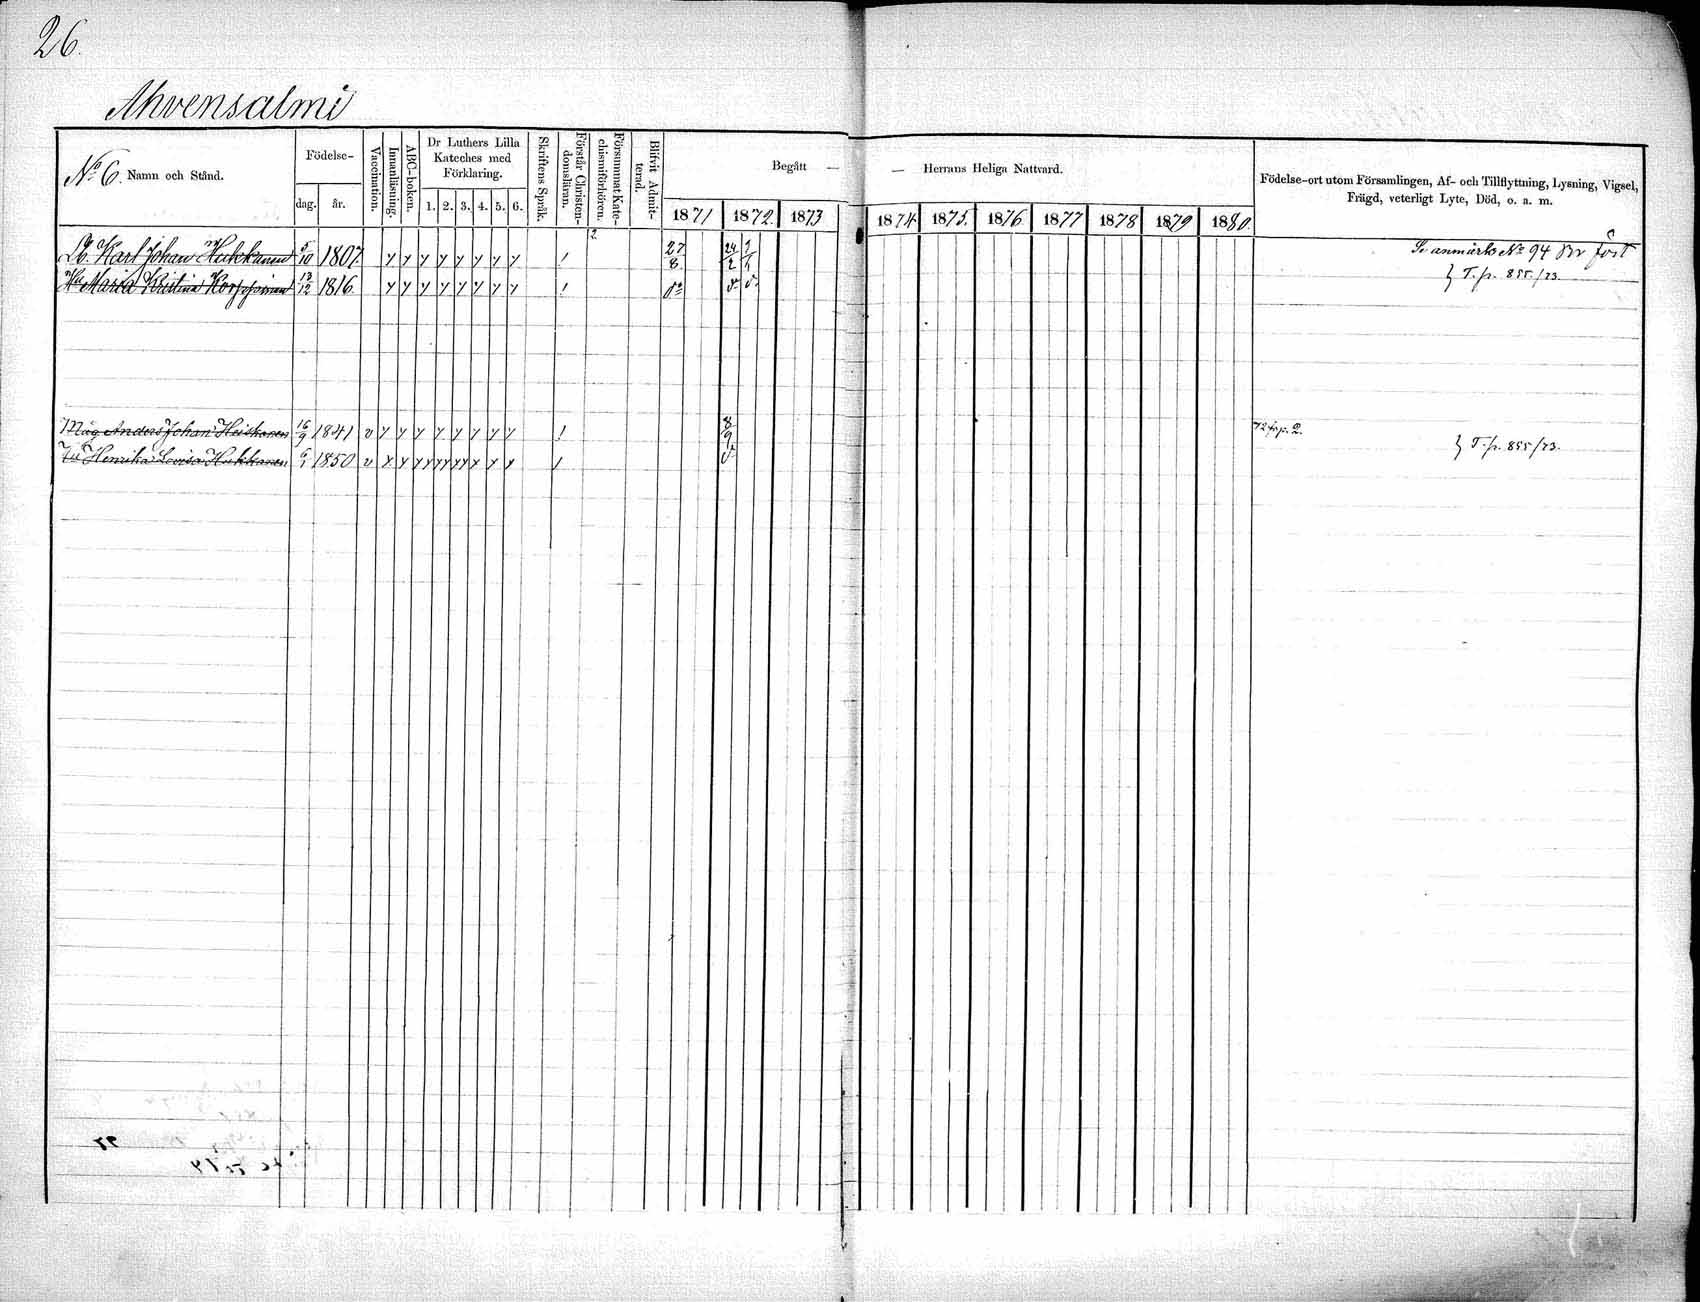 26.
Ahvensalmi
No 6. Namn och Stånd.
Födelse-
dag. år.
Vaccination.
Innanläsning.
ABC-boken.
Dr Luthers Lilla
Kateches med
Förklaring.
1. 2. 3. 4. 5. 6.
Skriftens Språk.
Förstår Christen-
domsläran.
Försummat Kate-
chismiförhören.
Blifvit Admit-
terad.
Begått —
— Herrans Heliga Nattvard.
1871 1872. 1873
1874 1875. 1876. 1877 1878 1879 1880.
Födelse-ort utom Församlingen, Af- och Tillflyttning, Lysning, Vigsel,
Frägd, veterligt Lyte, Död, o. a. m.
2.
Karl Johan Hukkanen 5/10 1807. y y y y y y y y / 27/8 24/2 1/1 Se anmärkn No 94
Hu Maria Kristina 13/12 1816. y y y y y y y y / } T. p. 855/73
Måg Anders Johan Heiskanen 16/9 1841 v y y y y y y y y / 8/9
} T. p. 855/73.
Henrika Lovisa Hukkanen 6/1 1850 v y y y y y y y y /